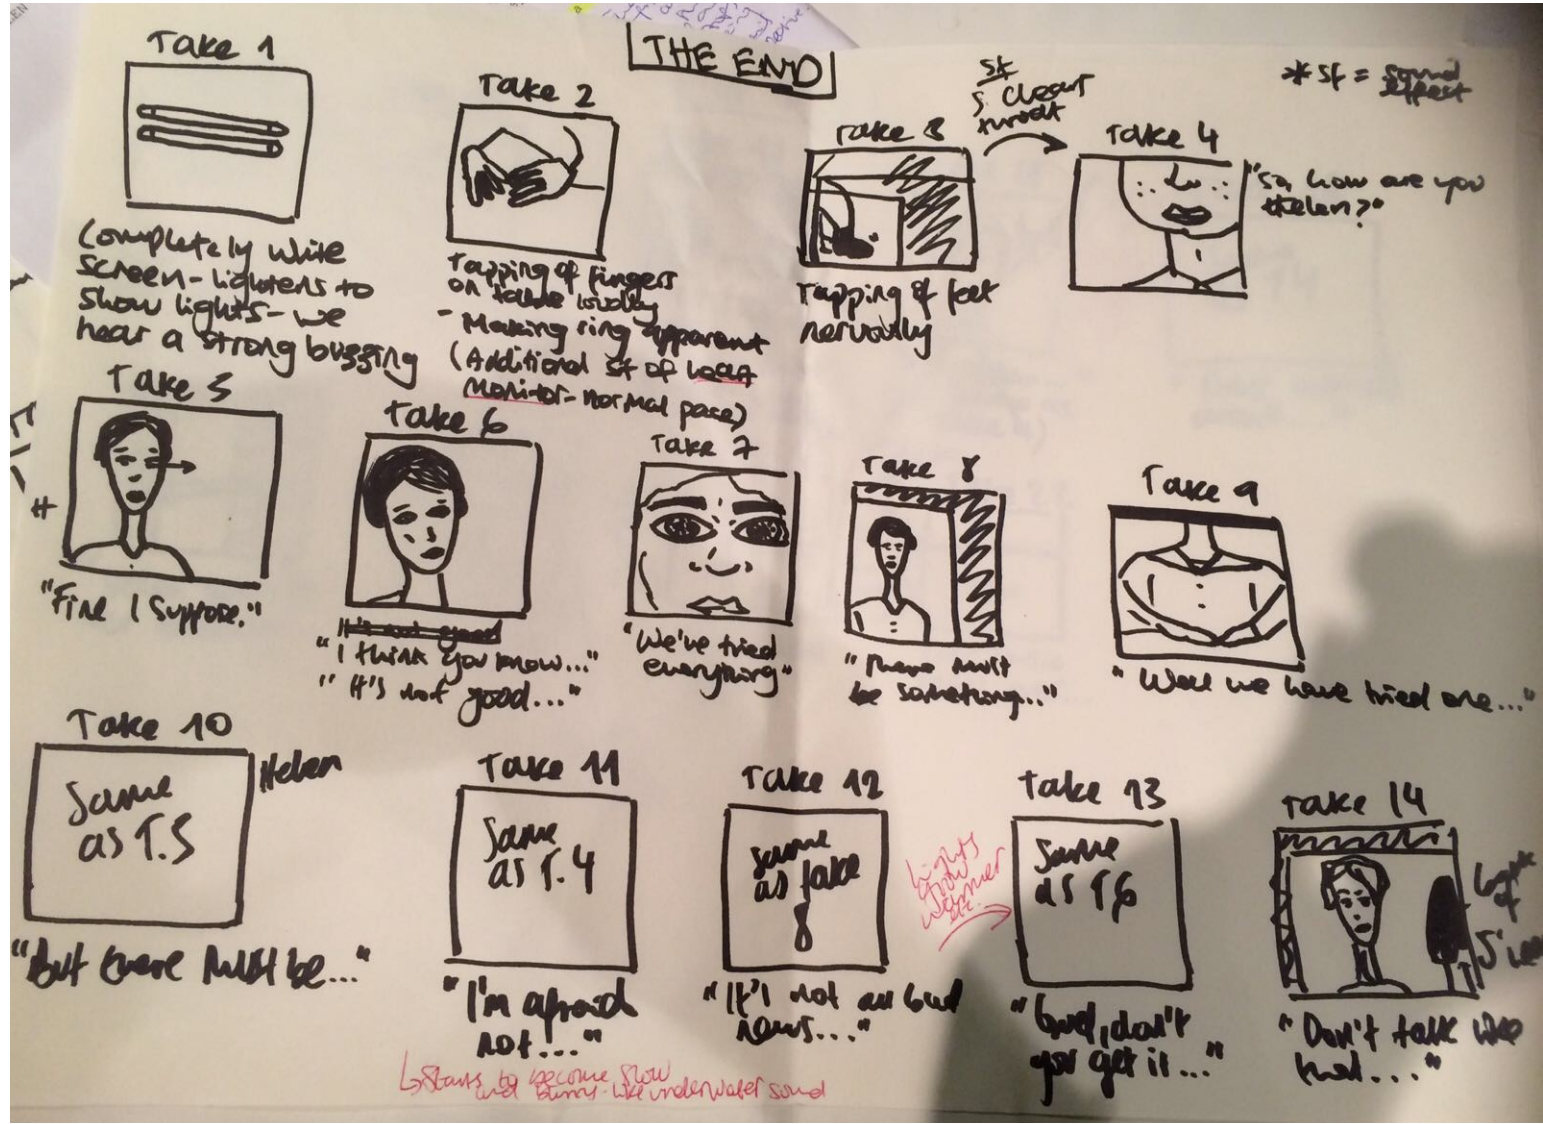 THE END
* sf = sound
effect
Take 1
Completely white
screen - lightens to
show lights - we
hear a strong buzzing
Take 2
Tapping of fingers
on table loudly
- Making ring apparent
(Additional sf of heart
monitor - normal pace)
Take 3
Tapping of feet
nervously
sf
throat
Take 4
"So, how are you
Helen?"
Take 5
H
"Fine I suppose."
Take 6
It's not good
"I think you know..."
"It's not good..."
Take 7
"We've tried
everything"
Take 8
"There must
be something..."
Take 9
"Well we have tried one..."
Take 10
Helen
Same
as T.5
"But there must be..."
Take 11
Same
as T.4
"I'm afraid
not..."
Starts to become slow
and blurry - like underwater sound
Take 12
Same
as take
8
"It's not all bad
news..."
Lights
grow
warmer
etc.
Take 13
Same
as T6
"God, don't
you get it..."
Take 14
of
"Don't talk like
that..."